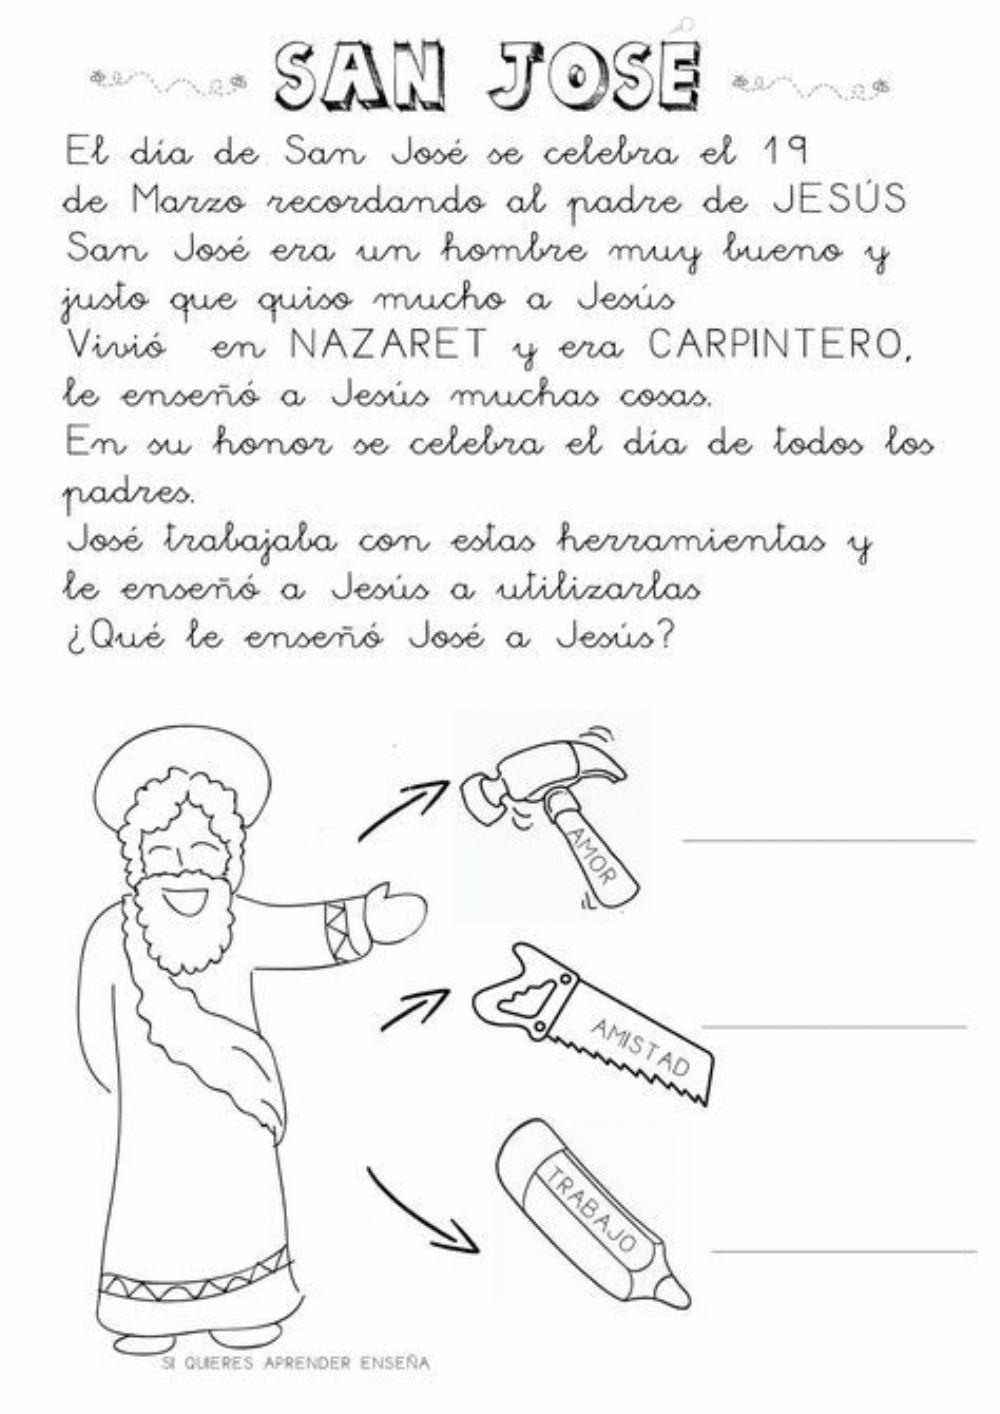 SAN JOSÉ
El día de San José se celebra el 19
de Marzo recordando al padre de JESÚS
San José era un hombre muy bueno y
justo que quiso mucho a Jesús
Vivió en NAZARET y era CARPINTERO,
le enseñó a Jesús muchas cosas.
En su honor se celebra el día de todos los
padres.
José trabajaba con estas herramientas y
le enseñó a Jesús a utilizarlas
¿Qué le enseñó José a Jesús?
AMOR
AMISTAD
TRABAJO
SI QUIERES APRENDER ENSEÑA